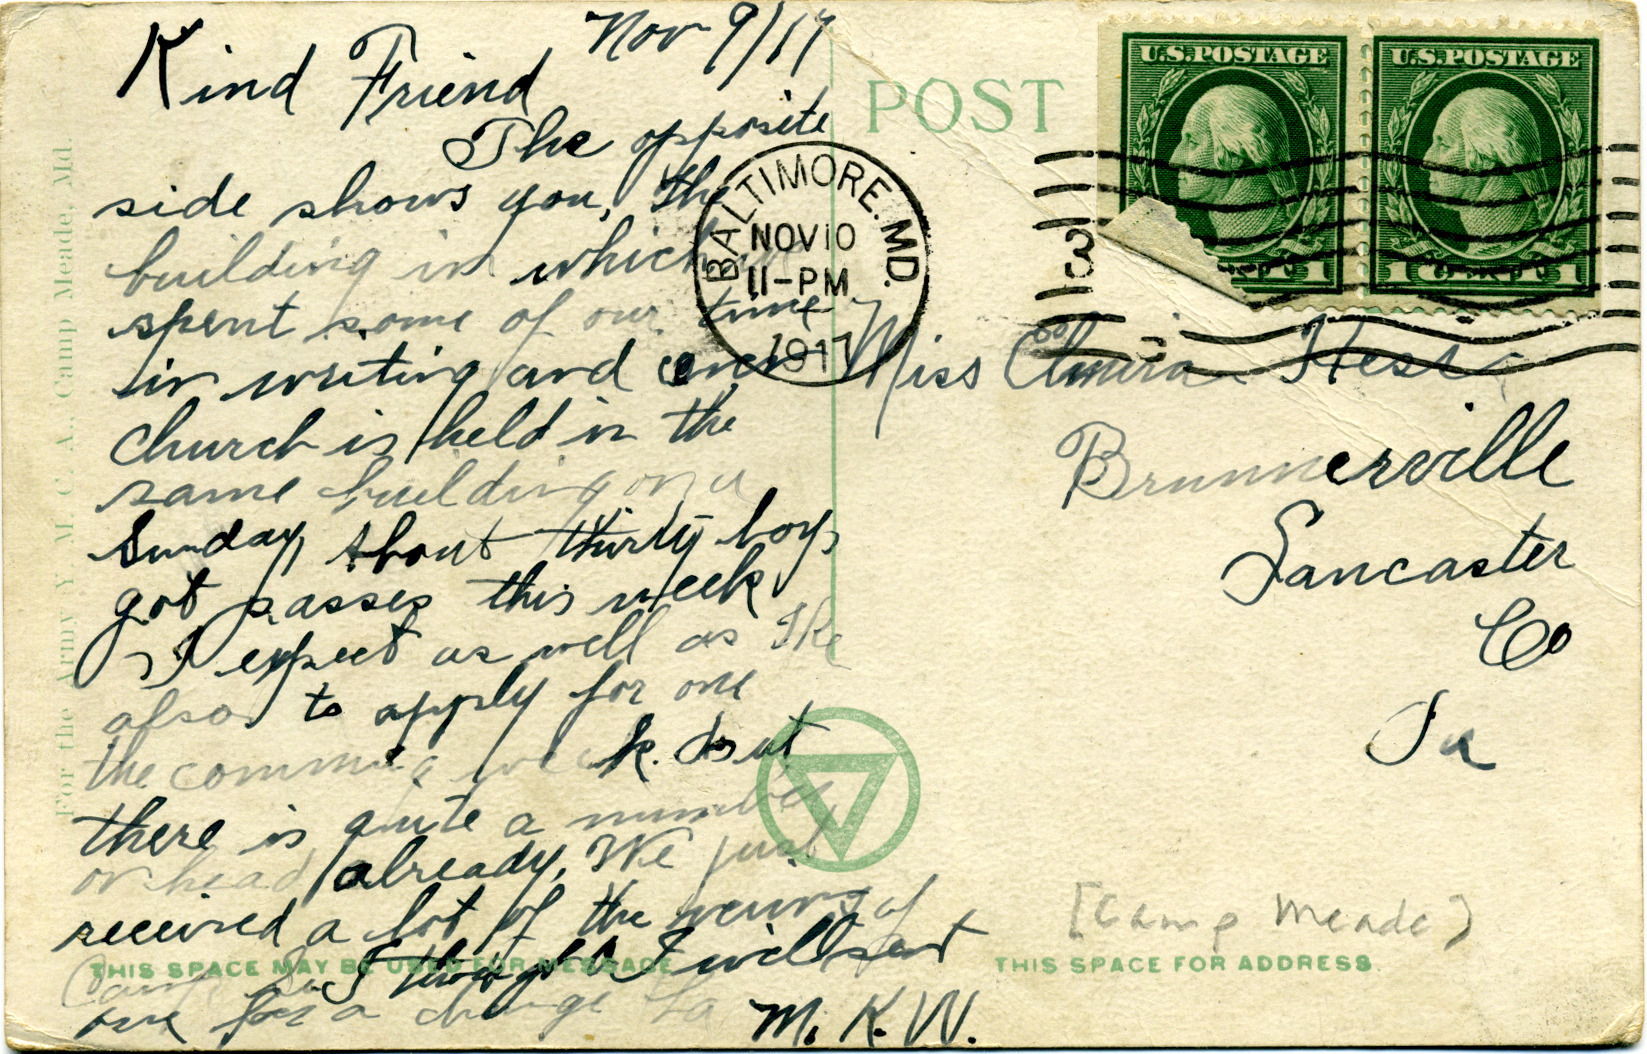 Nov 9/17
Kind Friend
The opposite
side shows you, the
building in which
spent some of our time
in writing and even
church is held in the
same building on a
Sunday, About thirty boys
got passes this week
I expect as well as Ike
also to apply for one
the comming week. but
there is quite a number
on head already, We just
received a lot of the views of
Camp So I thought I will sent
one for a change
M. K. W.
For the Army Y. M. C. A., Camp Meade, Md.
THIS SPACE MAY BE USED FOR MESSAGE
POST
BALTIMORE. MD.
NOV 10
11-PM
1917
U.S. POSTAGE
1 1
U.S. POSTAGE
1 1
Miss Elmira Hess
Brunnerville
Lancaster
Co
Pa
[Camp Meade]
THIS SPACE FOR ADDRESS